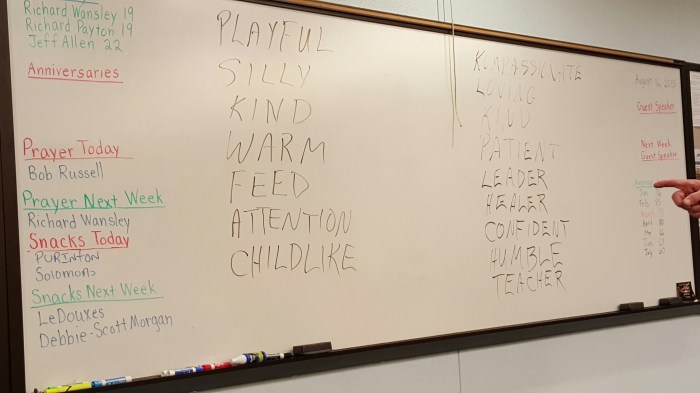 Richard Wansley 19
Richard Payton 19
Jeff Allen 22
Anniversaries
Prayer Today
Bob Russell
Prayer Next Week
Richard Wansley
Snacks Today
PURINTON
Solomons
Snacks Next Week
LeDouxes
Debbie-Scott Morgan
PLAYFUL
SILLY
KIND
WARM
FEED
ATTENTION
CHILDLIKE
KOMPASSIONATE
LOVING
KIND
PATIENT
LEADER
HEALER
CONFIDENT
HUMBLE
TEACHER
August
Guest Speaker
Next Week
Guest Speaker
Jan
Feb
April
July